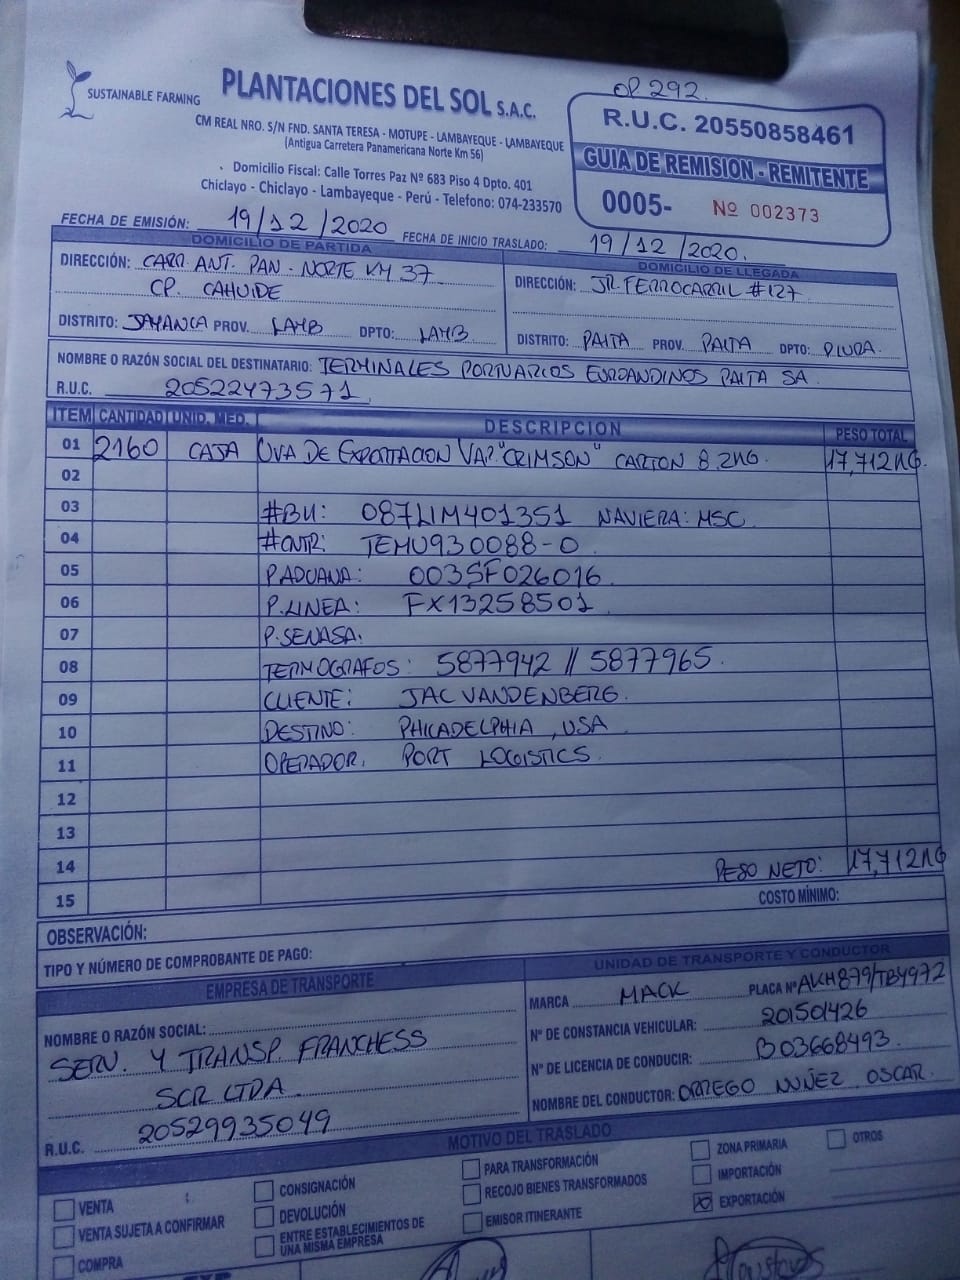 OP 292.
SUSTAINABLE FARMING
PLANTACIONES DEL SOL S.A.C.
CM REAL NRO. S/N FND. SANTA TERESA - MOTUPE - LAMBAYEQUE - LAMBAYEQUE
(Antigua Carretera Panamericana Norte Km 56)
Domicilio Fiscal: Calle Torres Paz Nº 683 Piso 4 Dpto. 401
Chiclayo - Chiclayo - Lambayeque - Perú - Telefono: 074-233570
R.U.C. 20550858461
GUIA DE REMISION - REMITENTE
0005- Nº 002373
FECHA DE EMISIÓN: 19/12/2020 FECHA DE INICIO TRASLADO: 19/12/2020.
DOMICILIO DE PARTIDA
DIRECCIÓN: CARR. ANT. PAN. NORTE KM 37
CP. CAHUIDE
DISTRITO: JAYANCA PROV. LAMB DPTO: LAMB
DOMICILIO DE LLEGADA
DIRECCIÓN: JR. FERROCARRIL #127
DISTRITO: PAITA PROV. PAITA DPTO: PIURA.
NOMBRE O RAZÓN SOCIAL DEL DESTINATARIO: TERMINALES PORTUARIOS EUROANDINOS PAITA SA.
R.U.C. 20522473571
ITEM CANTIDAD UNID. MED. DESCRIPCION PESO TOTAL
01 2160 CAJA UVA DE EXPORTACION VAR. "CRIMSON" CARTON 8.2KG. 17,712KG.
02
03 #BK: 087LIM401351 NAVIERA: MSC
04 #CNTR: TEMU930088-0
05 P.ADUANA: 003SF026016.
06 P.LINEA: FX13258501
07 P.SENASA:
08 TERMOGRAFOS: 5877942 // 5877965.
09 CLIENTE: JAC VANDENBERG.
10 DESTINO: PHILADELPHIA, USA
11 OPERADOR. PORT LOGISTICS.
12
13
14 PESO NETO: 17,712KG
15 COSTO MÍNIMO:
OBSERVACIÓN:
TIPO Y NÚMERO DE COMPROBANTE DE PAGO:
EMPRESA DE TRANSPORTE
NOMBRE O RAZÓN SOCIAL:
SERV. Y TRANSP. FRANCHESS
SCR LTDA
R.U.C. 20529935049
UNIDAD DE TRANSPORTE Y CONDUCTOR
MARCA MACK PLACA Nº AKH879/TBY972
Nº DE CONSTANCIA VEHICULAR: 201501426
Nº DE LICENCIA DE CONDUCIR: B03668493.
NOMBRE DEL CONDUCTOR: ORREGO NUÑEZ OSCAR.
MOTIVO DEL TRASLADO
VENTA
VENTA SUJETA A CONFIRMAR
COMPRA
CONSIGNACIÓN
DEVOLUCIÓN
ENTRE ESTABLECIMIENTOS DE
UNA MISMA EMPRESA
PARA TRANSFORMACIÓN
RECOJO BIENES TRANSFORMADOS
EMISOR ITINERANTE
ZONA PRIMARIA
IMPORTACIÓN
X EXPORTACIÓN
OTROS